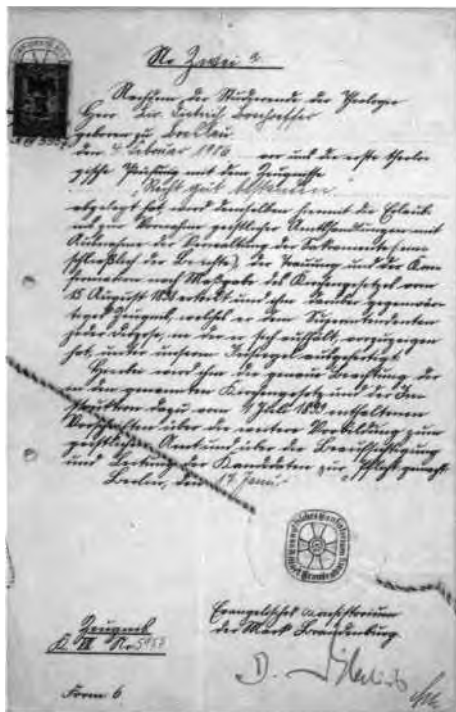 No Zwei
Nachdem der Studierende der Theologie
Herr Lic. Dietrich Bonhoeffer
geboren zu Breslau
den 4 Februar 1906 vor uns die erste theolo-
gische Prüfung mit dem Zeugnisse
"Recht gut bestanden"
abgelegt hat, wird demselben hiermit die Erlaub-
nis zur Vornahme geistlicher Amtshandlungen mit
Ausnahme der Verwaltung der Sakramente (ein-
schließlich der Beichte), der Trauung und der Kon-
firmation nach Maßgabe des Kirchengesetzes vom
15 August 1898 erteilt und ihm darüber gegenwär-
tiges Zeugnis, welches er dem Superintendenten
jeder Diözese, in der er sich aufhält, vorzuzeigen
hat, unter unserm Insiegel ausgefertigt.
Hierbei wird ihm die genaue Beachtung der
in dem genannten Kirchengesetz und der In-
struktion dazu vom Juli enthaltenen
Vorschriften über die weitere Vorbildung zum
geistlichen Amt und über die Beaufsichtigung
und Leitung der Kandidaten zur Pflicht gemacht.
Berlin, den 17 Janu.
Evangelisches Konsistorium
der Mark Brandenburg.
Zeugnis
K. III No
D.
Form 6.